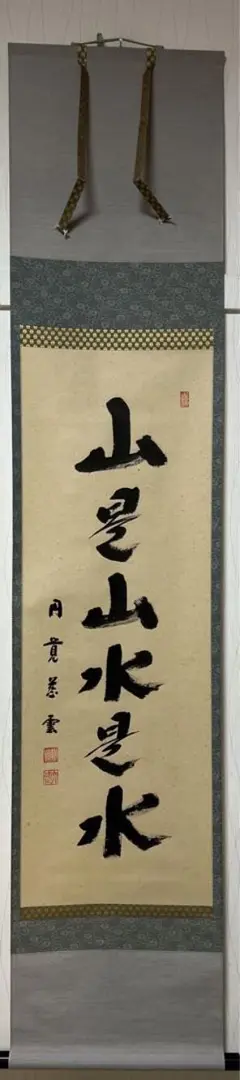 山是山水是水
円覚慈雲